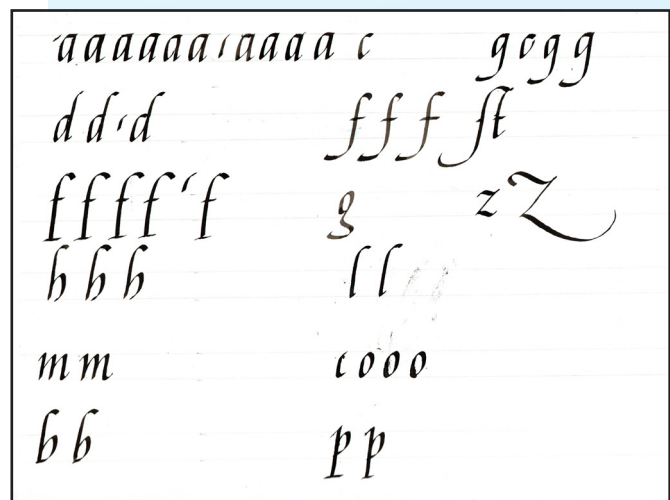 aaaaaaıaaaa c gcgg
dd'd fff ſt
ffff'f g z Z
hhh ll
mm cooo
bb pp